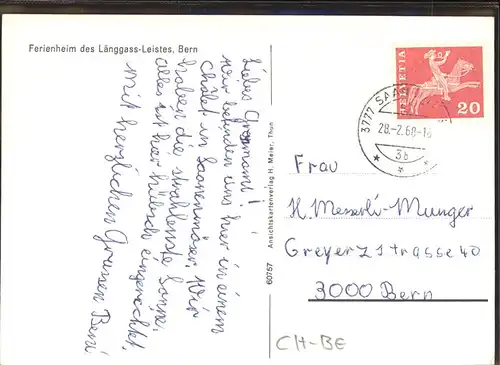 Ferienheim des Länggass-Leistes, Bern
Liebes Grosmami!
Wir befinden uns hier in einem
Châlet in Saanenmöser. Wir
haben die strahlenste Sonne.
alles ist hier hübsch eingerichtet.
mit herzlichen Grüssen Beni
60757 Ansichtskartenverlag H. Meier, Thun
HELVETIA
20
3777 SAAN
28.-2.68-18
3b
Frau
H. Messerli-Munger
Greyerzstrasse 40
3000 Bern
CH-BE